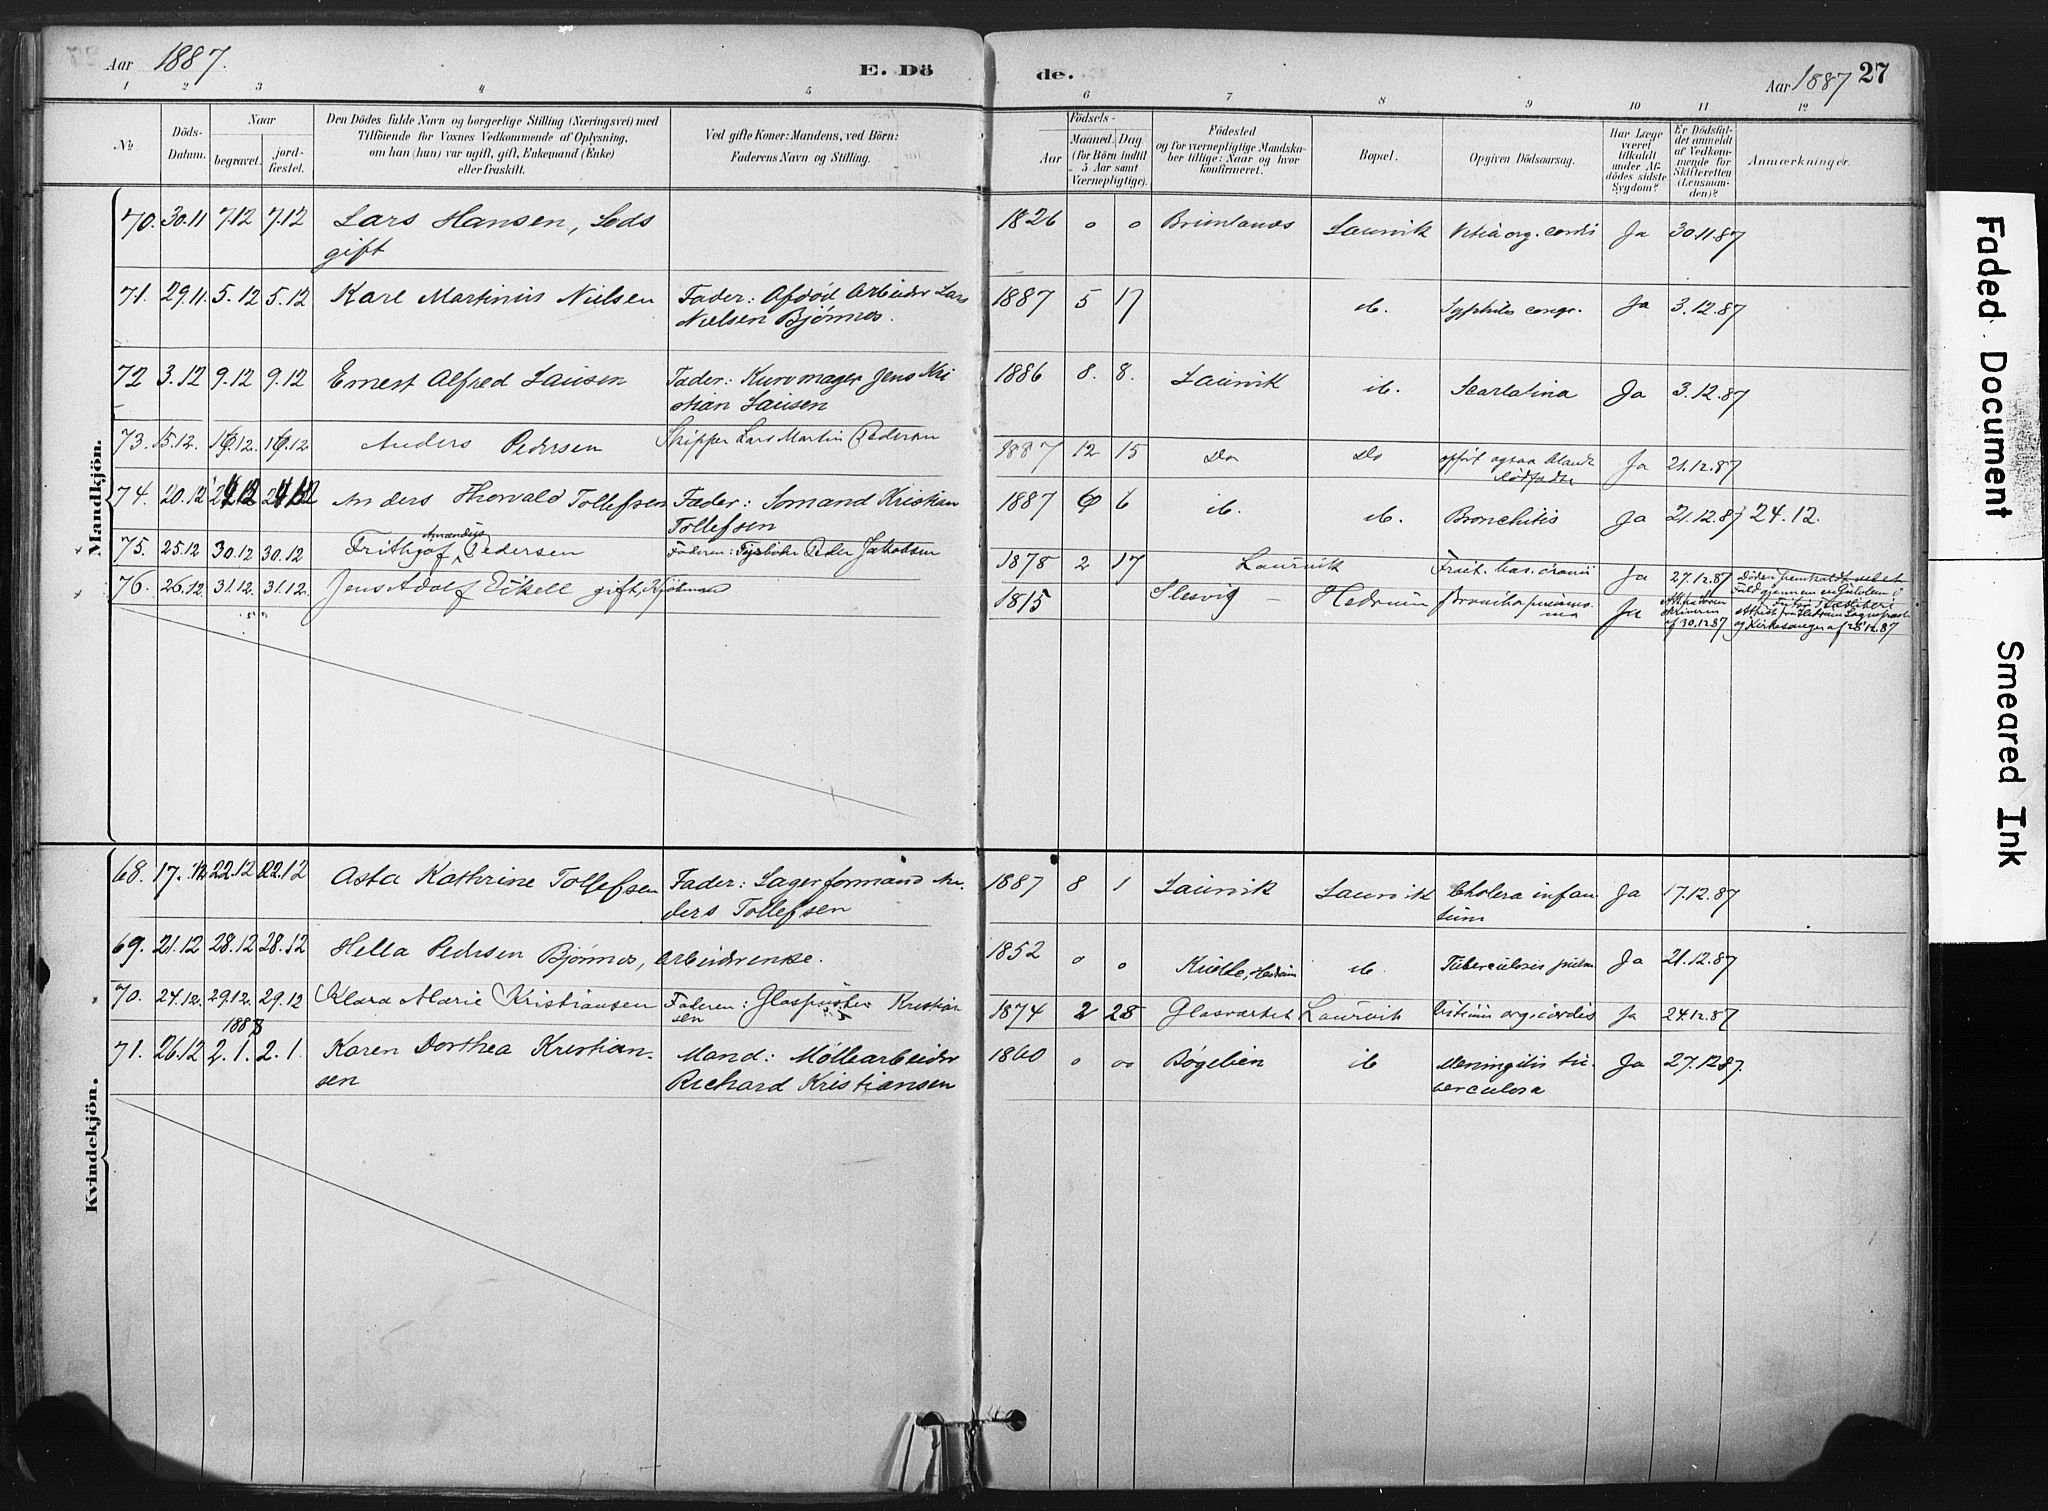 Aar 1887. E. Dö de. Aar 1887 27
1 2 3 4 5 6 7 8 9 10 11 12
№
Döds-
Datum.
Naar
begravet.
jord-
fæstet.
Den Dödes fulde Navn og borgerlige Stilling (Næringsvei) med
Tilföiende for Voxnes Vedkommende af Oplysning,
om han (hun) var ugift, gift, Enkemand (Enke)
eller fraskilt.
Ved gifte Koner: Mandens, ved Börn:
Faderens Navn og Stilling.
Födsels-
Aar
Maaned. Dag
(for Börn indtil
5 Aar samt
Værnepligtige).
Födested
og for værnepligtige Mandska-
ber tillige: Naar og hvor
konfirmeret.
Bopæl.
Opgiven Dödsaarsag.
Har Læge
været
tilkaldt
under Af-
dödes sidste
Sygdom?
Er Dödsfal-
det anmeldt
af Vedkom-
mende for
Skifteretten
(Lensman-
den)?
Anmærkninger.
Mandkjön.
70. 30.11 7.12 7.12 Lars Hansen, Lods 1826 0 0 Brunlanes Laurvik Vitia org. cordis Ja 30.11.87
gift
71. 29.11. 5.12 5.12 Karl Martinius Nielsen Fader: Afdød Arbeider Lars 1887 5 17 ib. Syphilis congr. Ja 3.12.87
Nielsen Bjønnes.
72 3.12 9.12 9.12 Ernest Alfred Lausen Fader: Kurvmager Jens Kri 1886 8. 8. Laurvik ib. Scarlatina Ja 3.12.87
stian Lausen
73. 15.12. 16.12 16.12 Anders Pedersen Skipper Lars Martin Pedersen 1887 12 15 Do Do Ja 21.12.87
74. 20.12 24.12 24.12 Anders Thorvald Tollefsen Fader: Sømand Kristian 1887 6 6 ib. ib. Bronchitis Ja 21.12.87 24.12.
Tollefsen
75. 25.12 30.12 30.12 Frithjof Amandus Pedersen Faderen: Fyrbøder Peder Jakobsen 1878 2 17 Laurvik Fract. bas. cranii Ja 27.12.87
76. 26.12. 31.12. 31.12. Jens Adolf Eikell gift, Kjøbmand 1815 Slesvig — Hedrum Ja
af 30.12.87 og Kirkesanger af 28.12.87
Kvindekjön.
68. 17.12 22.12 22.12 Asta Kathrine Tollefsen Fader: Lagerformand An- 1887 8 1 Laurvik Laurvik Cholera infan Ja 17.12.87
ders Tollefsen tum
69. 21.12 28.12 28.12 Hella Pedersen Bjønnes, Arbeiderenke. 1852 0 0 Kvelle, Hedrum ib Tuberculosis pulm Ja 21.12.87
70. 24.12. 29.12. 29.12 Klara Marie Kristiansen Faderen: Glaspuster Kristian 1874 2 28 Glasværket Laurvik Vitium org. cordis Ja 24.12.87
sen
1888
71. 26.12 2.1. 2.1. Karen Dorthea Kristian- Mand: Møllearbeider 1860 0 00 Bøgebien ib Meningitis tu- Ja 27.12.87.
sen Richard Kristiansen berculosa
Faded Document
Smeared Ink